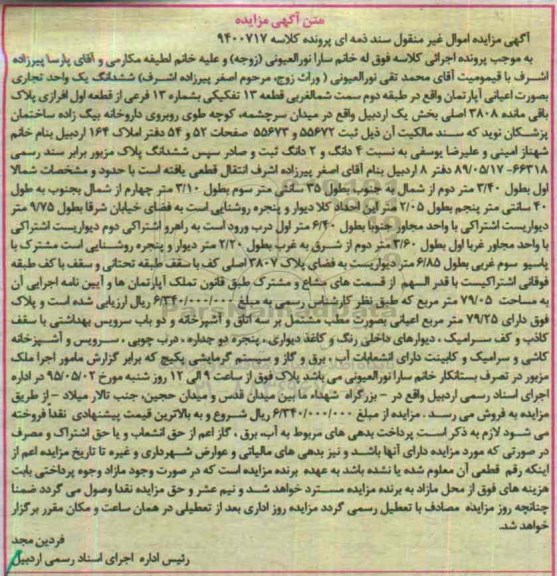 متن آگهی مزایده
آگهی مزایده اموال غیر منقول سند ذمه ای پرونده کلاسه ۹۴۰۰۷۱۷
به موجب پرونده اجرائی کلاسه فوق له خانم سارا نورالعیونی (زوجه) و علیه خانم لطیفه مکارمی و آقای پارسا پیرزاده
اشرف با قیمومیت آقای محمد تقی نورالعیونی ( وراث زوج، مرحوم اصغر پیرزاده اشرف) ششدانگ یک واحد تجاری
بصورت اعیانی آپارتمان واقع در طبقه دوم سمت شمالغربی قطعه ۱۳ تفکیکی بشماره ۱۳ فرعی از قطعه اول افرازی پلاک
باقی مانده ۳۸۰۸ اصلی بخش یک اردبیل واقع در میدان سرچشمه، کوچه طوی روبروی داروخانه بیگ زاده ساختمان
پزشکان نوید که سند مالکیت آن ذیل ثبت ۵۵۶۷۲ و ۵۵۶۷۳ صفحات ۵۲ و ۵۴ دفتر املاک ۱۶۴ اردبیل بنام خانم
شهناز امینی و علیرضا یوسفی به نسبت ۴ دانگ و ۲ دانگ ثبت و صادر سپس ششدانگ پلاک مزبور برابر سند رسمی
۶۶۳۱۸-۸۹/۰۵/۱۷ دفتر ۸ اردبیل بنام آقای اصغر پیرزاده اشرف انتقال قطعی یافته است با حدود و مشخصات شمالا
اول بطول ۳/۴۰ متر دوم از شمال به جنوب بطول ۳۵ سانتی متر سوم بطول ۳/۱۰ متر چهارم از شمال بجنوب به طول
۴۰ سانتی متر پنجم بطول ۲/۰۵ متر این احداد کلا دیوار و پنجره روشنایی است به فضای خیابان شرقا بطول ۹/۷۵ متر
دیواریست اشتراکی با واحد مجاور جنوبا بطول ۶/۴۰ متر اول درب ورود است به راهرو اشتراکی دوم دیواریست اشتراکی
با واحد مجاور غربا اول بطول ۳/۶۰ متر دوم از شرق به غرب بطول ۲/۲۰ متر دیوار و پنجره روشنایی است مشترک با
پاسیو سوم غربی بطول ۶/۸۵ متر دیواریست به فضای پلاک ۳۸۰۷ اصلی کف با سقف طبقه تحتانی و سقف با کف طبقه
فوقانی اشتراکیست با قدر السهم از قسمت های مشاع و مشترک طبق قانون تملک آپارتمان ها و آیین نامه اجرایی آن
به مساحت ۷۹/۰۵ متر مربع که طبق نظر کارشناس رسمی به مبلغ ۶/۳۴۰/۰۰۰/۰۰۰ ریال ارزیابی شده است و پلاک
فوق دارای ۷۹/۲۵ متر مربع اعیانی بصورت مطب مشتمل بر سه اتاق و آشپزخانه و دو باب سرویس بهداشتی با سقف
کاذب و کف سرامیک ، دیوارهای داخلی رنگ و کاغذ دیواری، پنجره دو جداره ، درب چوبی ، سرویس و آشپزخانه
کاشی و سرامیک و کابینت دارای انشعابات آب ، برق و گاز و سیستم گرمایشی پکیج که برابر گزارش مامور اجرا ملک
مزبور در تصرف بستانکار خانم سارا نورالعیونی می باشد پلاک فوق از ساعت ۹ الی ۱۲ روز شنبه مورخ ۹۵/۰۵/۰۲ در اداره
اجرای اسناد رسمی اردبیل واقع در - بزرگراه شهداء ما بین میدان قدس و میدان حججین، جنب تالار میلاد - از طریق
مزایده به فروش می رسد . مزایده از مبلغ ۶/۳۴۰/۰۰۰/۰۰۰ ریال شروع و به بالاترین قیمت پیشنهادی نقدا فروخته
می شود لازم به ذکر است، پرداخت بدهی های مربوط به آب، برق ، گاز اعم از حق انشعاب و یا حق اشتراک و مصرف
در صورتی که مورد مزایده دارای آنها باشد و نیز بدهی های مالیاتی و عوارض شهرداری و غیره تا تاریخ مزایده اعم از
اینکه رقم قطعی آن معلوم شده یا نشده باشد به عهده برنده مزایده است که در صورت وجود مازاد وجوه پرداختی بابت
هزینه های فوق از محل مازاد به برنده مزایده مسترد خواهد شد و نیم عشر و حق مزایده نقدا وصول می گردد ضمنا
چنانچه روز مزایده مصادف با تعطیل رسمی گردد مزایده روز اداری بعد از تعطیلی در همان ساعت و مکان مقرر برگزار
خواهد شد.
فردین مجد
رئیس اداره اجرای اسناد رسمی اردبیل